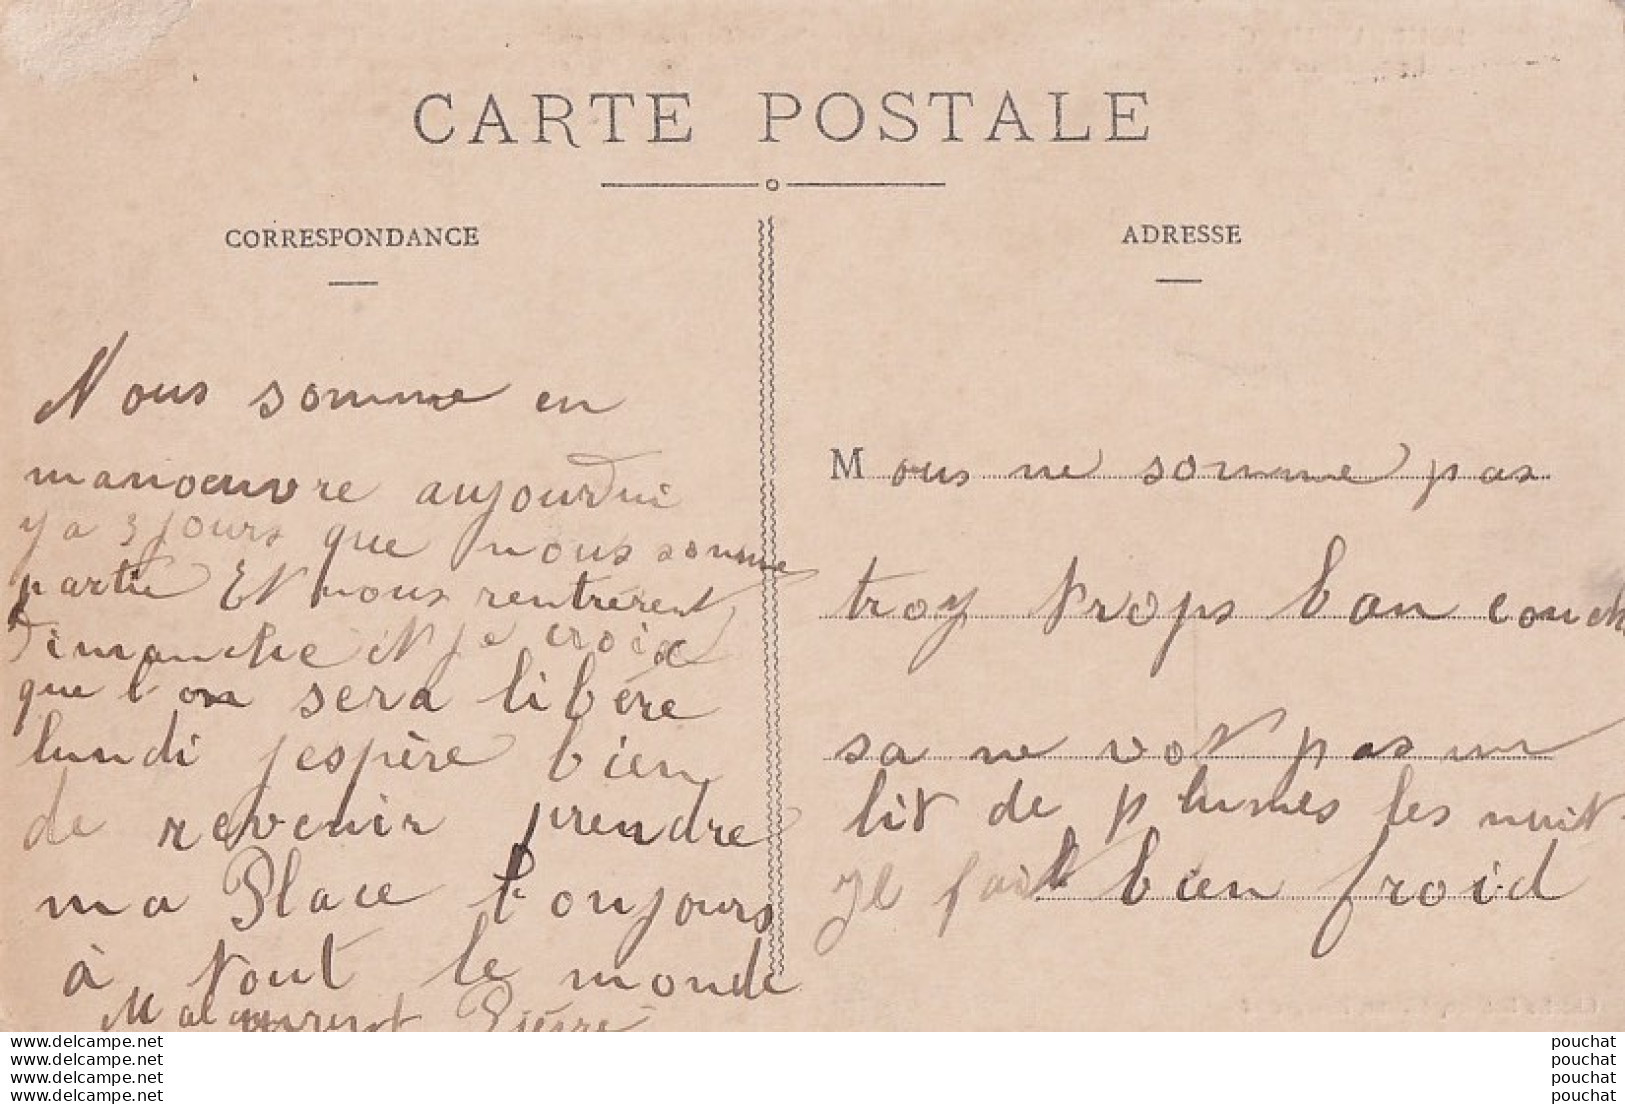 CARTE POSTALE
CORRESPONDANCE
Nous somme en
manoeuvre aujourdui
y a 3 jours que nous somme
partie Et nous rentrerent
Dimanche et je croix
que l'on sera libère
lundi j'espère bien
de revenir prendre
ma Place toujours
à tout le monde
Pierre
ADRESSE
Mous ne somme pas
troy trops ban couch
sa ne vot pas un
lit de plumes les nuit
Il fait bien froid
www.delcampe.net
www.delcampe.net
www.delcampe.net
www.delcampe.net
pouchat
pouchat
pouchat
pouchat